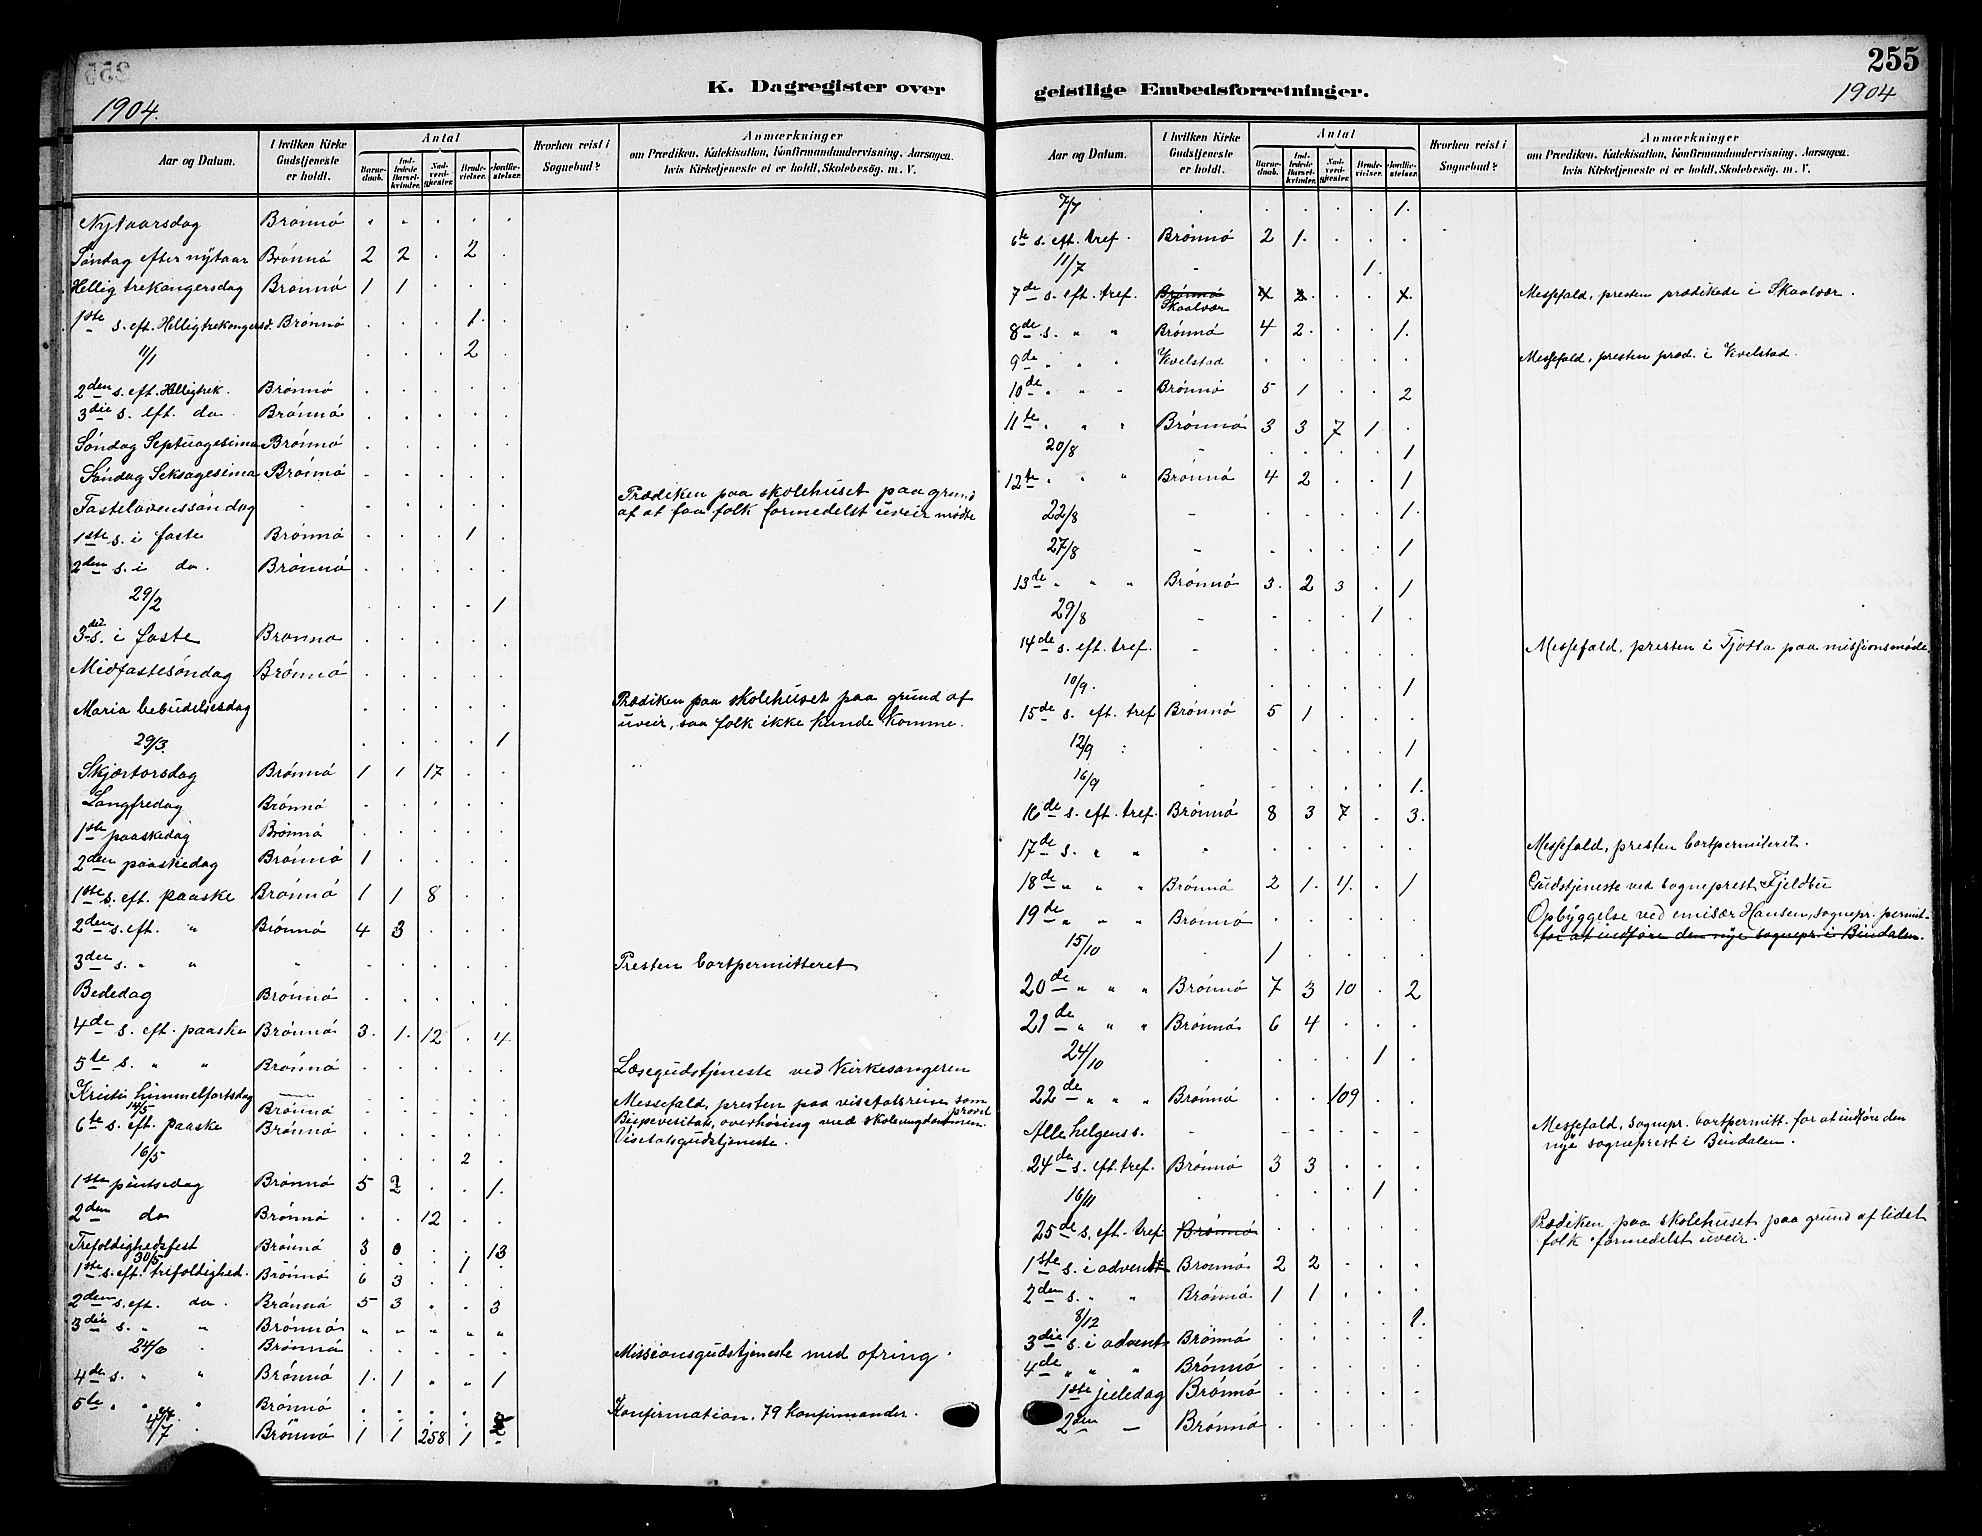 255
K. Dagregister over geistlige Embedsforretninger.
1904.
1904
Aar og Datum.
I hvilken Kirke Gudstjeneste er holdt.
Antal
Barnedaab.
Indledede Barselkvinder.
Nadverdgjester.
Brudevielser.
Jordfæstelser.
Hvorhen reist i Sognebud?
Anmærkninger
om Prædiken, Katekisation, Konfirmandundervisning, Aarsagen,
hvis Kirketjeneste ei er holdt, Skolebesøg, m. V.
Nytaarsdag Brønnø . . . . .
Søndag efter nytaar Brønnø 2 2 . 2 .
Hellig trekongersdag Brønnø 1 1 . . .
1ste s. eft. Helligtrekongersd. Brønnø . . . 1. .
11/1 . . . 2 .
2den s. eft. Helligtrek. Brønnø . . . . .
3die s. eft. do. Brønnø . . . . .
Søndag Septuagesima Brønnø . . . . .
Søndag Seksagesima Brønnø . . . . .
Fastelavenssøndag . . . . . Prædiken paa skolehuset paa grund
af at faa folk formedelst uveir mødte
1ste s. i faste Brønnø . . . 1 .
2den s. i do. Brønnø . . . . .
29/2 . . . . 1
3die s. i faste Brønnø . . . . .
Midfastesøndag Brønnø . . . . .
Maria bebudelsesdag . . . . . Prædiken paa skolehuset paa grund af
uveir, saa folk ikke kunde komme.
29/3. . . . . 1
Skjærtorsdag Brønnø 1 1 17 . .
Langfredag Brønnø . . . . .
1ste paaskedag Brønnø . . . . .
2den paaskedag Brønnø 1 . . . .
1ste s. eft. paaske Brønnø 1 1 8 . .
2den s. eft. " Brønnø 4 3 . . .
3die s. " " " . . . . . Presten bortpermitteret
Bededag Brønnø . . . . .
4de s. eft. paaske Brønnø 3. 1. 12 . 4.
5te s. " " Brønnø . . . . . Læsegudstjeneste ved Kirkesangeren
Kristi himmelfartsdag — . . . . . Messefald, presten paa visetatsreise som provst
14/5 Brønnø . . . . . Bispevesitats, overhøring med skoleungdommen.
6te s. eft. paaske Brønnø . . . . . Visetatsgudstjeneste.
16/5 . . . 2 .
1ste pintsedag Brønnø 5 2 . . 1.
2den do Brønnø . . 12 . .
Trefoldighedsfest Brønnø 3 0 . . 13
30/5 1
1ste s. eft. trefoldighed. Brønnø 6 3 . . .
2den s. eft. do. Brønnø 5 3 " . 3
3die s. " " Brønnø " " " " "
24/6 . Brønnø . . . . . Missionsgudstjeneste med ofring.
4de s. " " Brønnø 1. 1 " " 1
5te " " " Brønnø . . . . . Konfirmation. 79 konfirmander.
4/7 . Brønnø 1 1 258 1
255
Aar og Datum.
I hvilken Kirke Gudstjeneste er holdt.
Antal
Barnedaab.
Indledede Barselkvinder.
Nadverdgjester.
Brudevielser.
Jordfæstelser.
Hvorhen reist i Sognebud?
Anmærkninger
om Prædiken, Katekisation, Konfirmandundervisning, Aarsagen,
hvis Kirketjeneste ei er holdt, Skolebesøg, m. V.
7/7 . . . . . 1.
6te s. eft. tref. Brønnø 2 1. . . .
11/7 - . . . 1. .
7de s. eft. tref. Brønnø Skaalvær . . Messefald, presten prædikede i Skaalvær.
8de s. " " Brønnø 4 2. . . 1.
9de " " " Kvelstad . . . . . Messefald, presten præd. i Kvelstad.
10de " " " Brønnø 5 1 . . 2
11te " " " Brønnø 3 3 7 1 .
20/8 - . . . . 1
12te " " " Brønnø 4 2 . . 1
22/8 - . . . . 1.
27/8 - . . . . 1
13de " " " Brønnø 3. 2 3 . 1
29/8 - . . . 1 .
14de s. eft. tref. - . . . . . Messefald, presten i Tjøtta paa missionsmøde.
10/9. . . . . . 1
15de s. eft. tref Brønnø 5 1 . . .
12/9 : . . . . . 1
16/9 . . . . 1.
16de s. eft. tref. Brønnø 8 3 7 . 3.
17de s. " " " . . . . . Messefald, presten bortpermiteret.
18de " " " Brønnø 2 1. 4. . 1 Gudstjeneste ved sogneprest Fjeldbu
19de " " " Brønnø . . . . . Opbyggelse ved emisær Hansen, sognepr. permit-
15/10 . 1 . . . . for at indføre den nye sognepr. i Bindalen.
20de " " " Brønnø 7 3 10 . 2
21de " " " Brønnø 6 4 . . .
24/10 . . . . 1 .
22de " " " Brønnø . . 109 . .
Alle helgens s. - - - - - - Messefald, sognepr. bortpermitt. for at indføre den
nye sogneprest i Bindalen.
24de s. eft. tref. Brønnø 3 3 . . .
16/11 . . . . 1 .
25de s. eft. tref Brønnø . . . . . Prædiken paa skolehuset paa grund af lidet
folk formedelst uveir.
1ste s. i advent Brønnø 2 2 . . .
2den s. " " Brønnø 1 1 . . .
8/12 . . . . 1.
3die s. i advent Brønnø . . . . .
4de " " " Brønnø . . . . .
1ste juledag Brønnø . . . . .
2den — Brønnø . . . . .